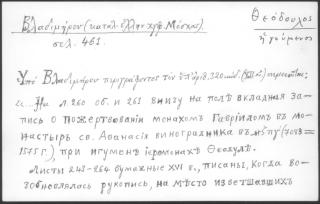 Βλαδιμήρου (κατάλ. ἑλλην. χγφ. Μόσχας)
σελ. 461.
Θεόδουλος
ἡγούμενος
Ὑπὸ Βλαδιμήρου περιγράφοντος τὸν ὑπ' ἀριθ. 320 κώδ. σημειοῦται:
"На л. 260 об. и 261 внизу на полѣ вкладная за-
пись о пожертвованіи монахомъ Гавріиломъ въ мо-
настырь св. Аѳанасія виноградника въ (7083 =
1575 г.), при игуменѣ іеромонахѣ Ѳеодулѣ.
Листы 243-264 бумажные XVI в., писаны, когда во-
зобновлялась рукопись, на мѣсто изветшавшихъ